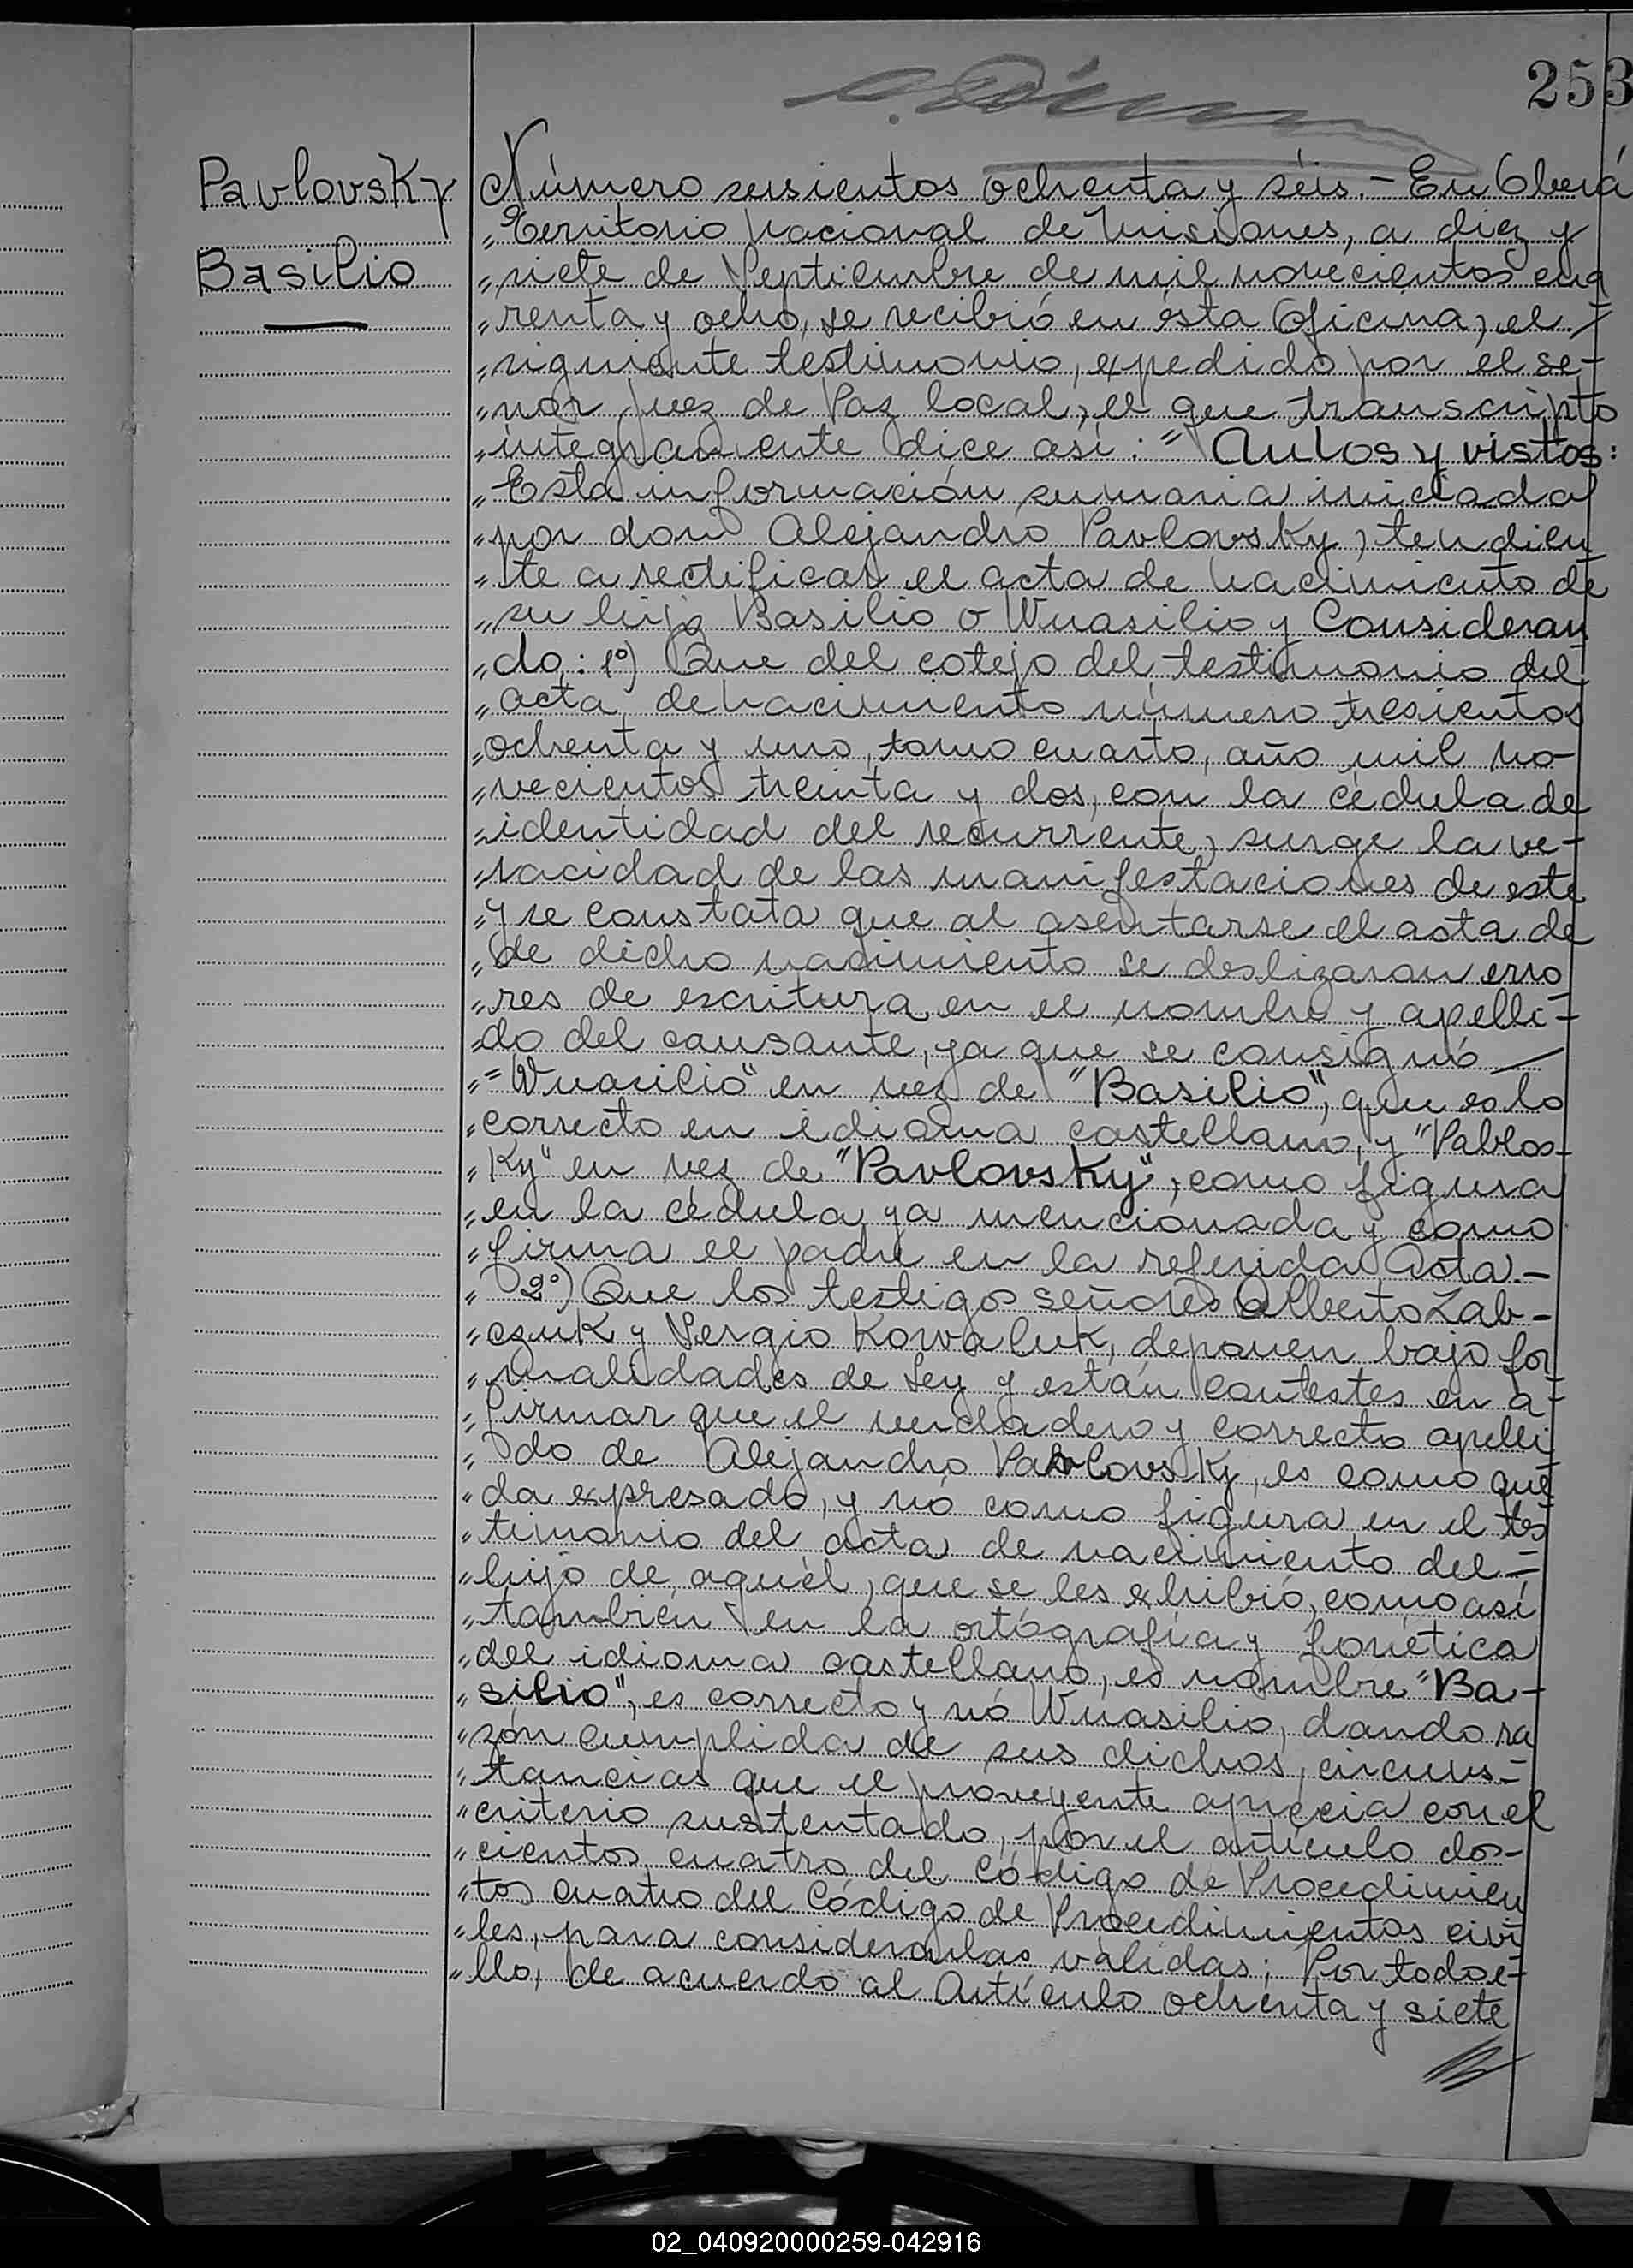 253
Pavlovsky
Basilio
Número seisientos ochenta y séis.- En Oberá
„Territorio nacional de Misiones, a diez y
„siete de Septiembre de mil novecientos cua
„renta y ocho, se recibió en ésta Oficina, el
„siguiente testimonio, expedido por el se-
„ñor Juez de Paz local, el que transcripto
„integramente dice asi: "Autos y vistos:
„Esta información sumaria iniciada
„por don Alejandro Pavlovsky, tendien
„te a rectificar el acta de nacimiento de
„su hijo Basilio o Wuasilio y Consideran
„do: 1º) Que del cotejo del testimonio del
„acta de nacimiento número tresientos
„ochenta y uno, tomo cuarto, año mil no-
„vecientos treinta y dos, con la cédula de
„identidad del recurrente, surge la ve-
„racidad de las manifestaciones de este
„y se constata que al asentarse el acta de
„de dicho nacimiento se deslizaron erro
„res de escritura en el nombre y apelli-
„do del causante, ya que se consignó
„"Wuasilio" en vez de "Basilio", que es lo
„correcto en idioma castellano, y "Pablos-
„Ky" en vez de "Pavlovsky", como figura
„en la cédula ya mencionada y como
„firma el padre en la referida Acta.-
„2º) Que los testigos señores Alberto Zab-
„czuk y Sergio Kowaluk, deponen bajo for
„malidades de Ley y están contestes en a-
„firmar que el verdadero y correcto apelli
„do de Alejandro Pavlovsky, es como que
„da expresado, y nó como figura en el tes
„timonio del acta de nacimiento del-
„hijo de aquél, que se les exhibió, como así
„también en la ortografía y fonética
„del idioma castellano, es nombre "Ba-
„silio", es correcto y nó Wuasilio, dando ra
„zón cumplida de sus dichos, circuns-
„tancias que el proveyente aprecia con el
„criterio sustentado, por el artículo dos-
„cientos cuatro del Código de Procedimien
„tos cuatro del Código de Procedimientos civi
„les, para considerarlas válidas; Por todo e-
„llo, de acuerdo al Artículo ochenta y siete
02_040920000259-042916